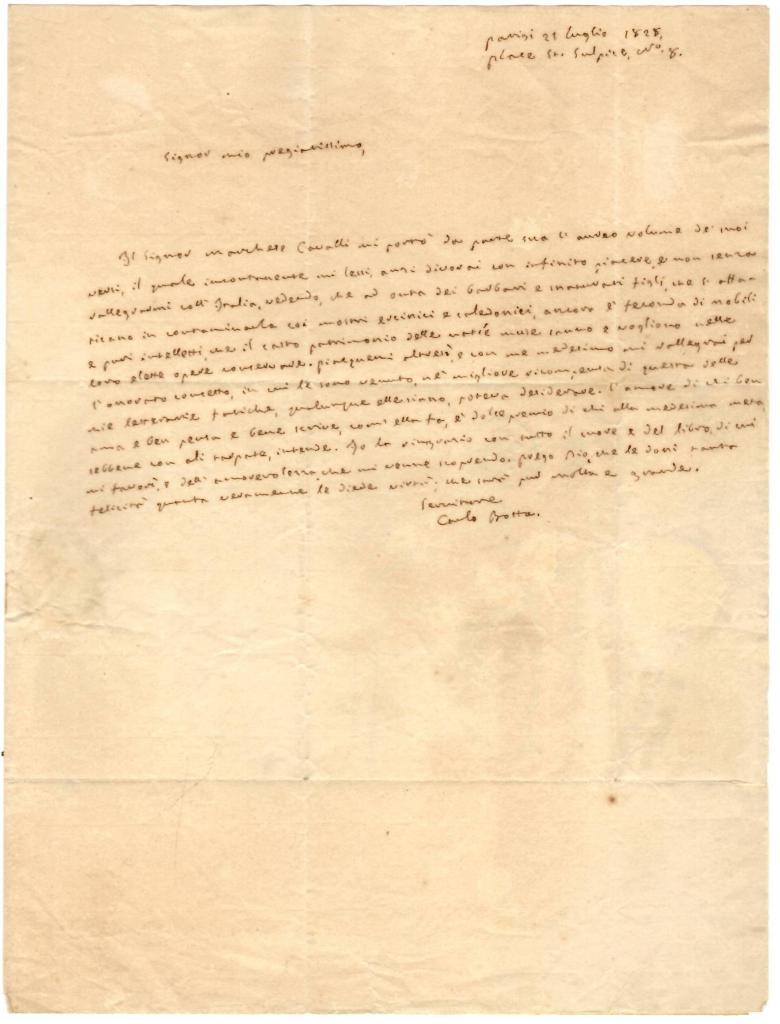 parigi 21 luglio 1828,
place St. Sulpice, No. 8.
Signor mio pregiatissimo,
Il Signor marchese Cavalli mi portò da parte sua l'aureo volume de' suoi
versi, il quale incontanente mi lessi, anzi divorai con infinito piacere, e non senza
rallegrarmi coll'Italia, vedendo, che ad onta dei barbari e snaturati figli, che s'affa-
ticano in contaminarla coi mostri ercinici e caledonici, ancora è feconda di nobili
e puri intelletti, che il casto patrimonio delle natìe muse sanno e vogliono nelle
loro elette opere conservare. piacquemi altresì, e con me medesimo mi rallegrai per
l'onorato concetto, in cui le sono venuto, nè migliore ricompensa di questa delle
mie letterarie fatiche, qualunque elle siano, poteva desiderare. l'amore di chi ben
ama e ben pensa e bene scrive, com'ella fa, è dolce premio di chi alla medesima meta,
sebbene con ali tarpate, intende. Io la ringrazio con tutto il cuore e del libro, di cui
mi favorì, e dell'amorevolezza, che mi venne scoprendo. prego Dio, che le doni tanta
felicità quanta veramente le diede virtù; che sarà pur molta e grande.
Servitore
Carlo Botta.